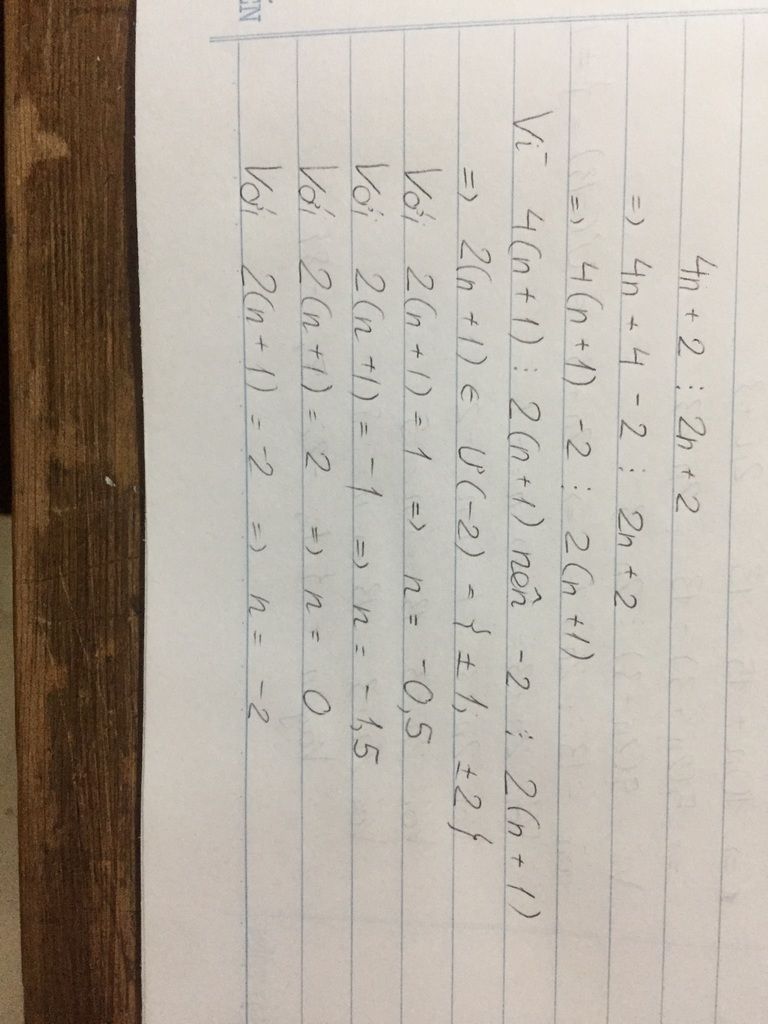 4n + 2 ⋮ 2n + 2
=> 4n + 4 - 2 ⋮ 2n + 2
=> 4(n + 1) - 2 ⋮ 2(n + 1)
Vì 4(n + 1) ⋮ 2(n + 1) nên -2 ⋮ 2(n + 1)
=> 2(n + 1) ∈ Ư(-2) = { ± 1, ± 2 }
Với 2(n + 1) = 1 => n = -0,5
Với 2(n + 1) = -1 => n = -1,5
Với 2(n + 1) = 2 => n = 0
Với 2(n + 1) = -2 => n = -2